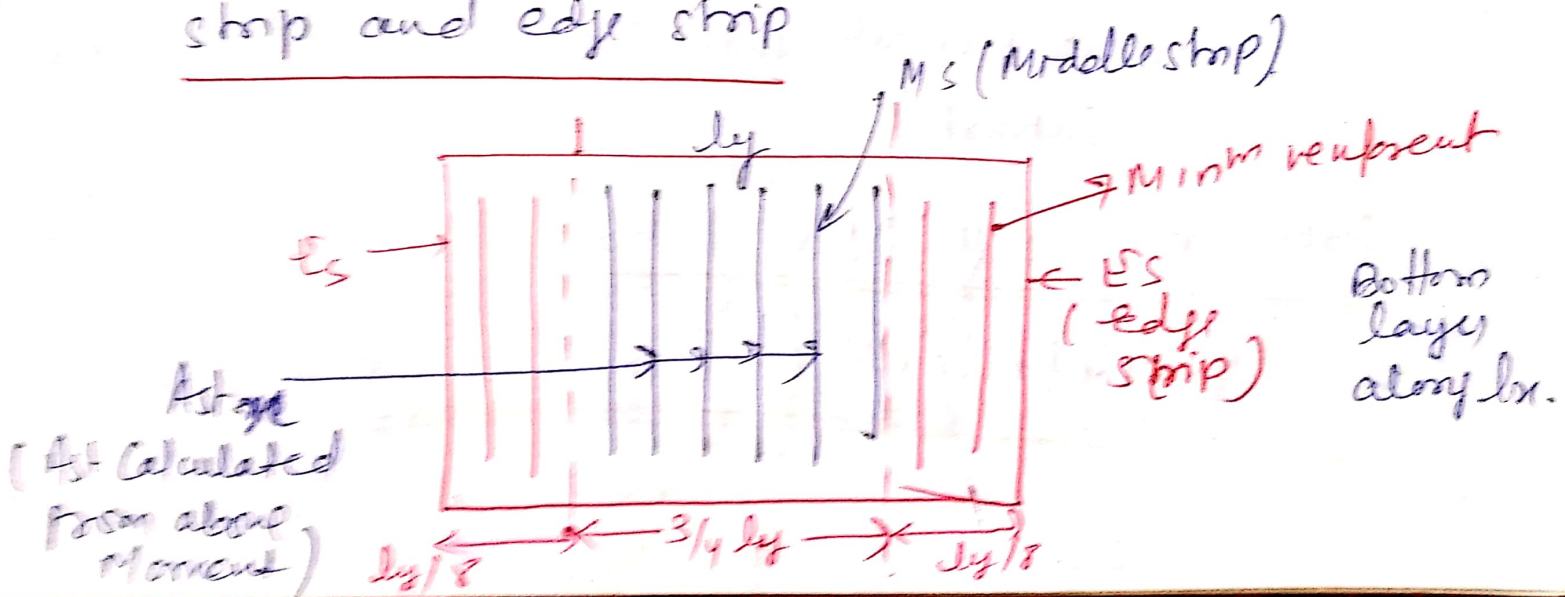 strip and edge strip
MS (Middle strip)
ly
Minm
Es
ES
(edge
strip)
Bottom
layer
along lx.
Ast
(Ast Calculated
from above
Moment)
ly/8
3/4 ly
ly/8